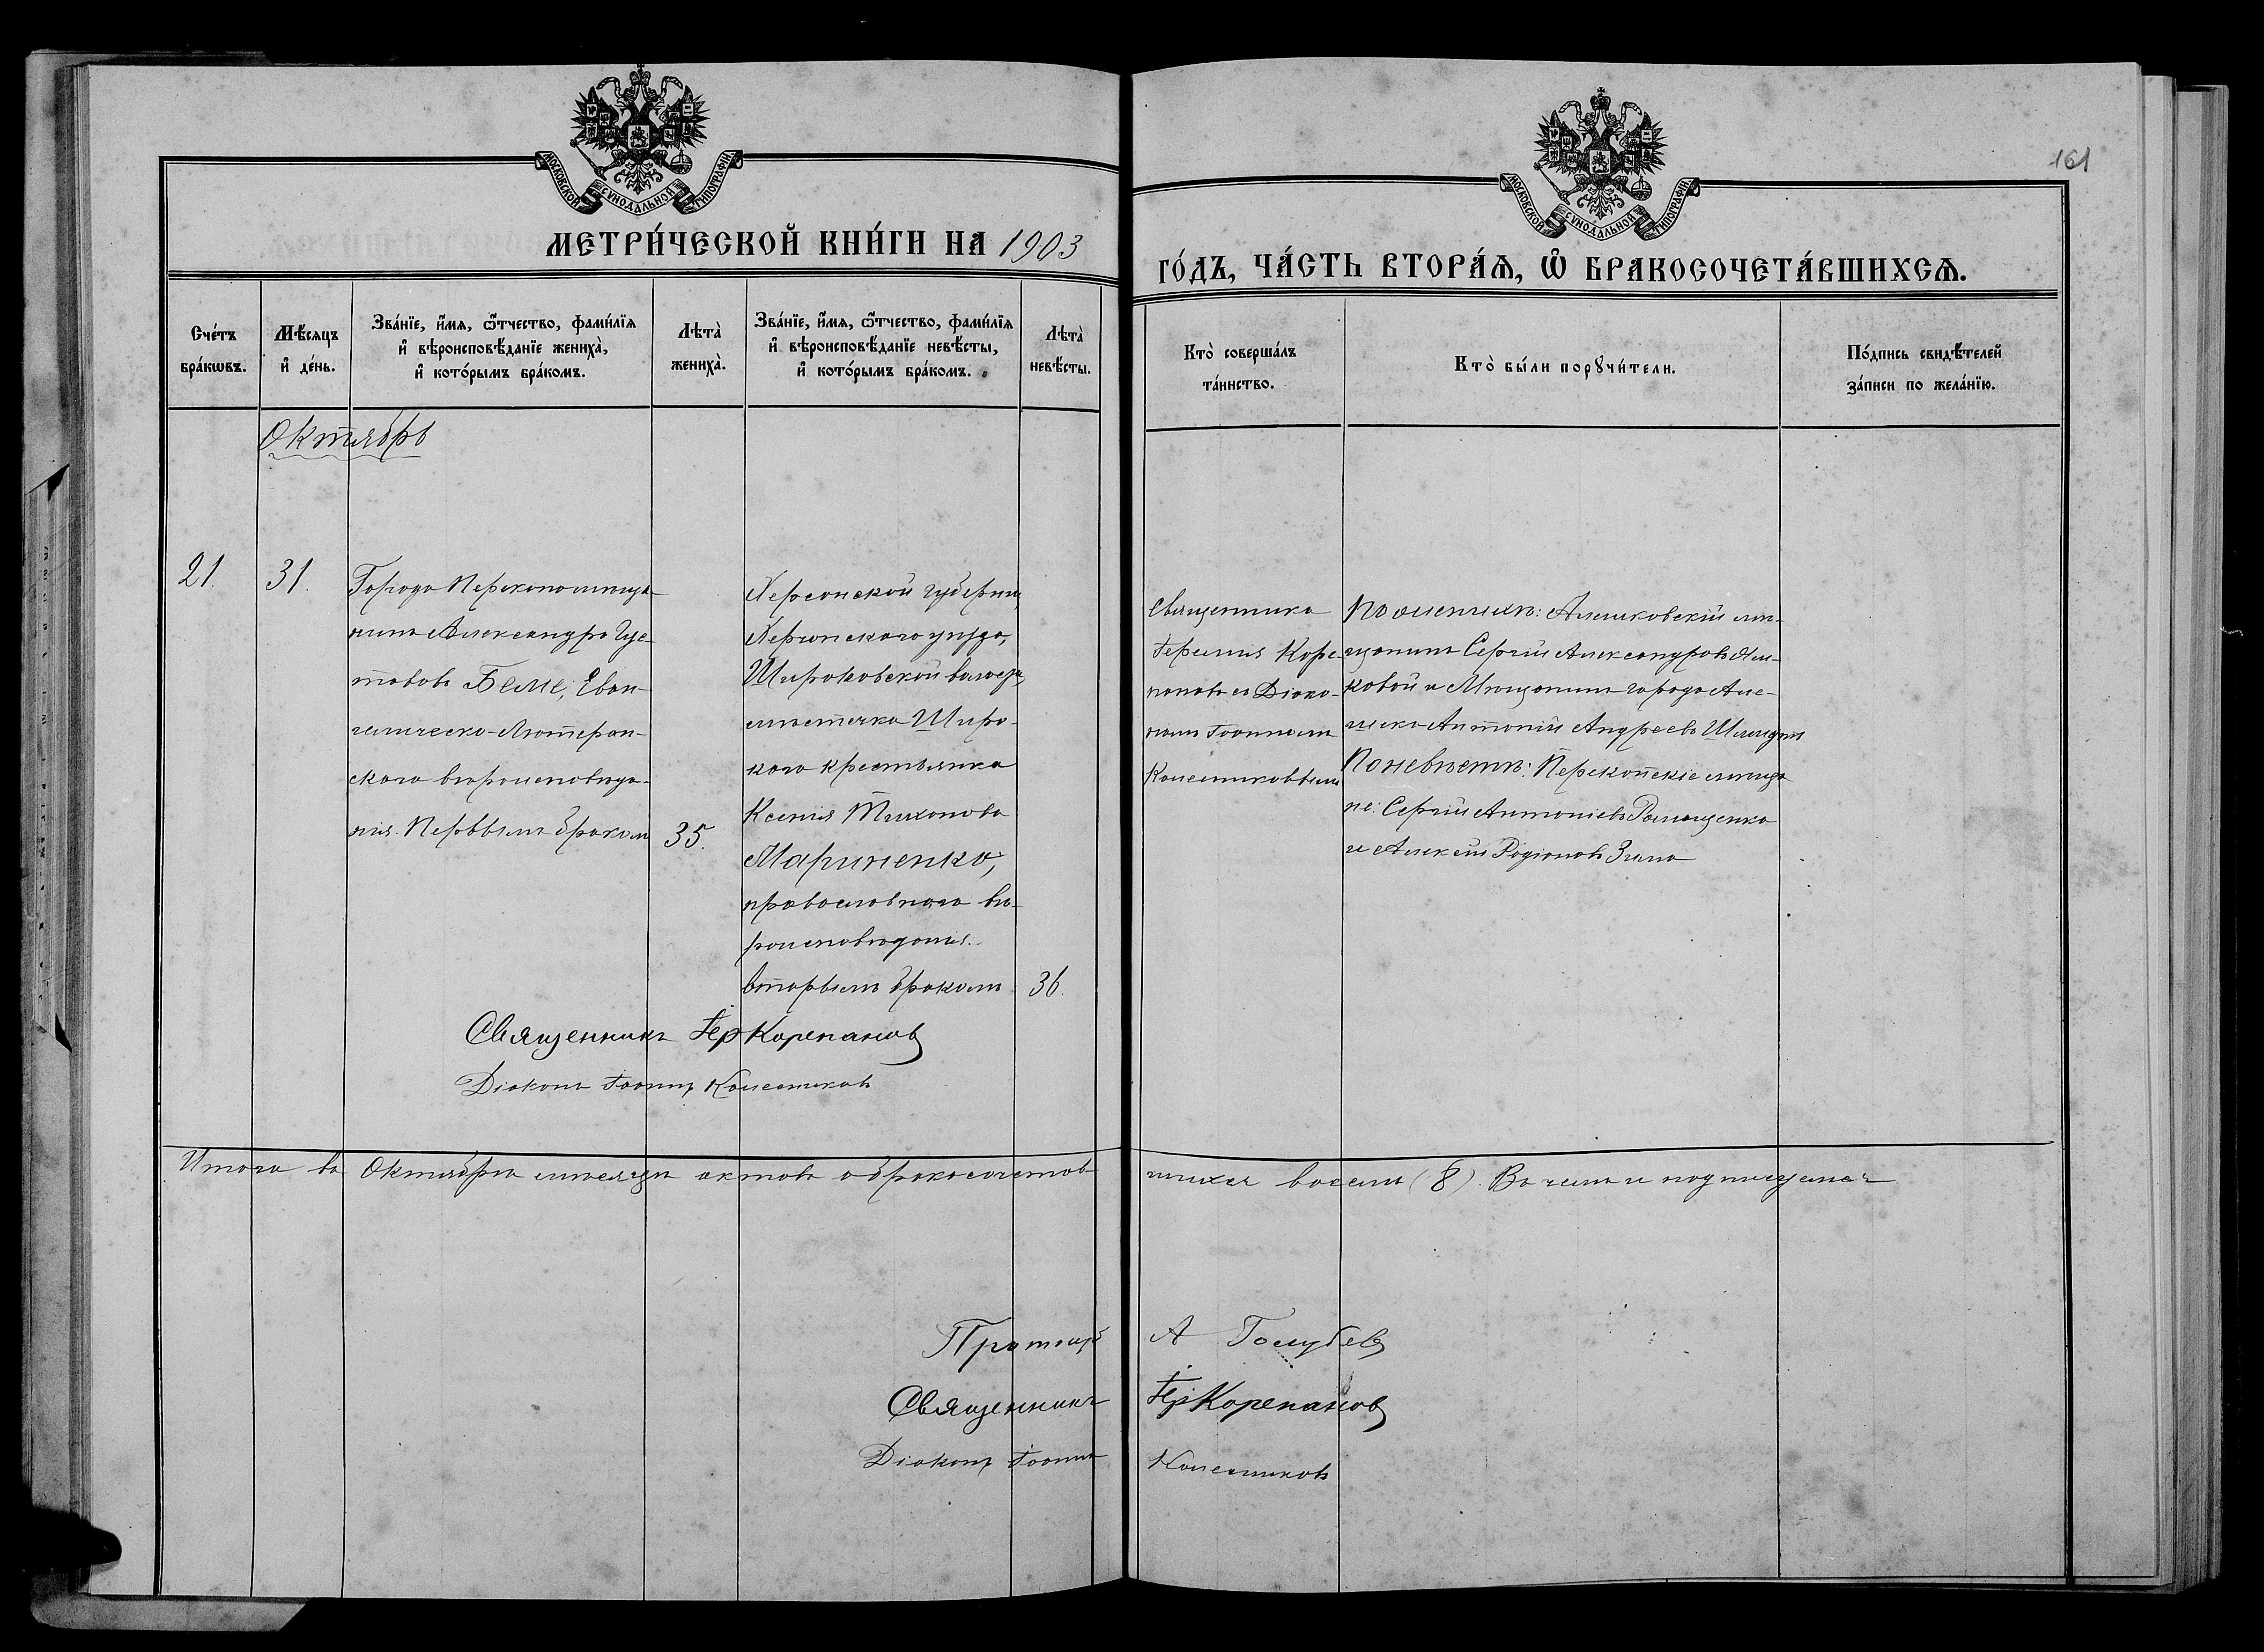 161
МОСКОВСКОЙ СѴНОДАЛЬНОЙ ТИПОГРАФІИ
МОСКОВСКОЙ СѴНОДАЛЬНОЙ ТИПОГРАФІИ
МЕТРИ́ЧЕСКОЙ КНИ́ГИ НА 1903
ГО́ДЪ, ЧА́СТЬ ВТОРА́Ѧ, Ѽ БРАКОСОЧЕТА́ВШИХСѦ.
Сче́тъ
бра́кѡвъ.
Мѣ́сяцъ
и҆ де́нь.
Зва́нїе, и҆́мѧ, ѻ҆́тчество, фами́лїѧ
и҆ вѣроисповѣ́данїе жениха̀,
и҆ кото́рымъ бра́комъ.
Лѣта̀
жениха̀.
Зва́нїе, и҆́мѧ, ѻ҆́тчество, фами́лїѧ
и҆ вѣроисповѣ́данїе невѣ́сты,
и҆ кото́рымъ бра́комъ.
Лѣта̀
невѣ́сты.
Кто̀ соверша́лъ
та́инство.
Кто̀ бы́ли порꙋчи́тели.
По́дпись свидѣ́телей
за́писи по жела́нїю.
Октябрь
21.
31.
Города Перекопа мѣща-
нинъ Александръ Гус-
тавовъ Беме, Еван-
гелическо-Лютеран-
скаго вѣроисповѣда-
нія. Первымъ бракомъ
35.
Херсонской губерніи,
Херсонскаго уѣзда,
Широковской волости,
мѣстечка Широ-
каго крестьянка
Ксенія Тихонова
Мариненко,
православнаго вѣ-
роисповѣданія.
вторымъ бракомъ
36.
Священникъ
Іеремія Коре-
пановъ съ Діако-
номъ Іоанномъ
Колесниковымъ
По женихѣ: Алешковскій мѣ-
щанинъ Сергій Александровъ
ковой и Мѣщанинъ города Але-
шекъ Антоній Андреевъ
По невѣстѣ: Перекопскіе мѣща-
не: Сергій Антоніевъ Ромащенко
и Алексѣй Родіоновъ Зима
Священникъ Іер Корепановъ
Діаконъ Іоаннъ Колесниковъ
Итого въ Октябрѣ мѣсяцѣ актовъ о бракосочетав-
шихся восемь (8). Въ чемъ и подписуемся:
Протоіер А Голубевъ
Священникъ Іер Корепановъ
Діаконъ Іоаннъ Колесниковъ